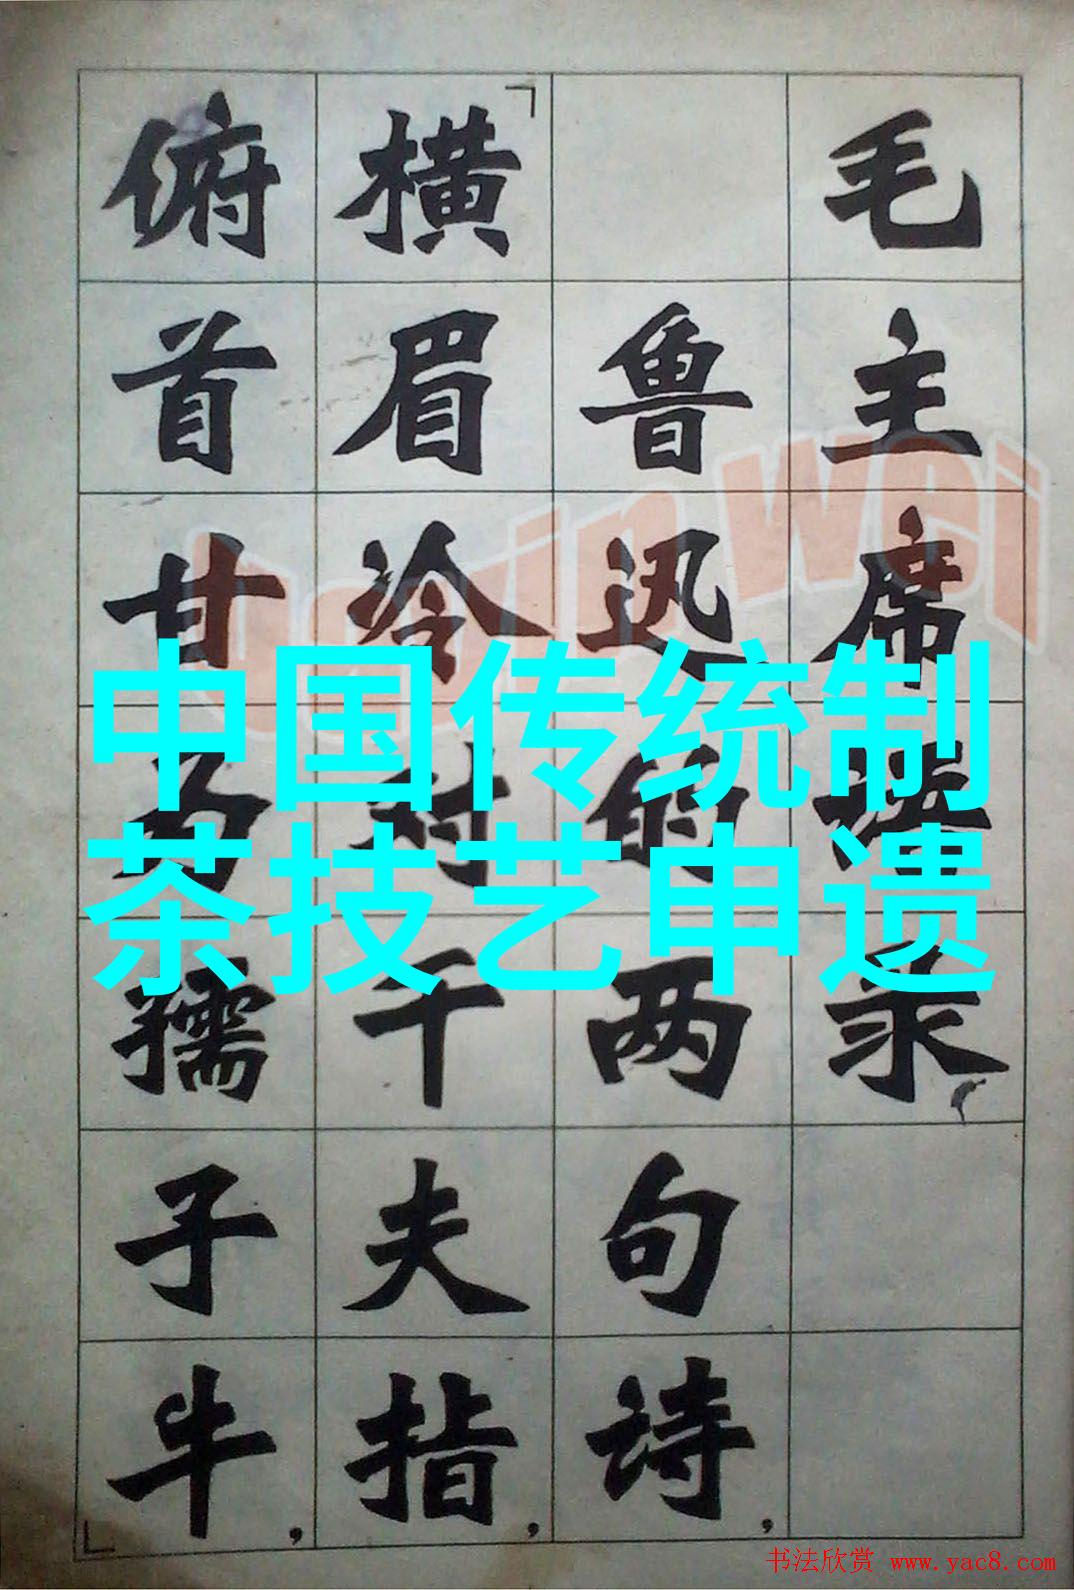 毛主席语录
鲁迅的两句诗，
「横眉冷对千夫指，
俯首甘为孺子牛，」
中国传统制
茶技艺申遗
书法欣赏 www.yac8.com